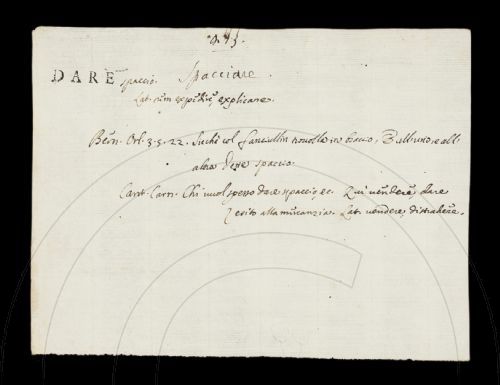 DARE spaccio. Spacciare.
Lat. rem expedire, explicare.
Bern. Orl. 3. 5. 22. Sicchè col fanciullin novello in braccio, E all'uno, e all'
altro dette spaccio.
Cant. Carn. Chi vuol spesso dare spaccio, ec. Qui vendere, dare
esito alla mercanzia. Lat. vendere, distrahere.